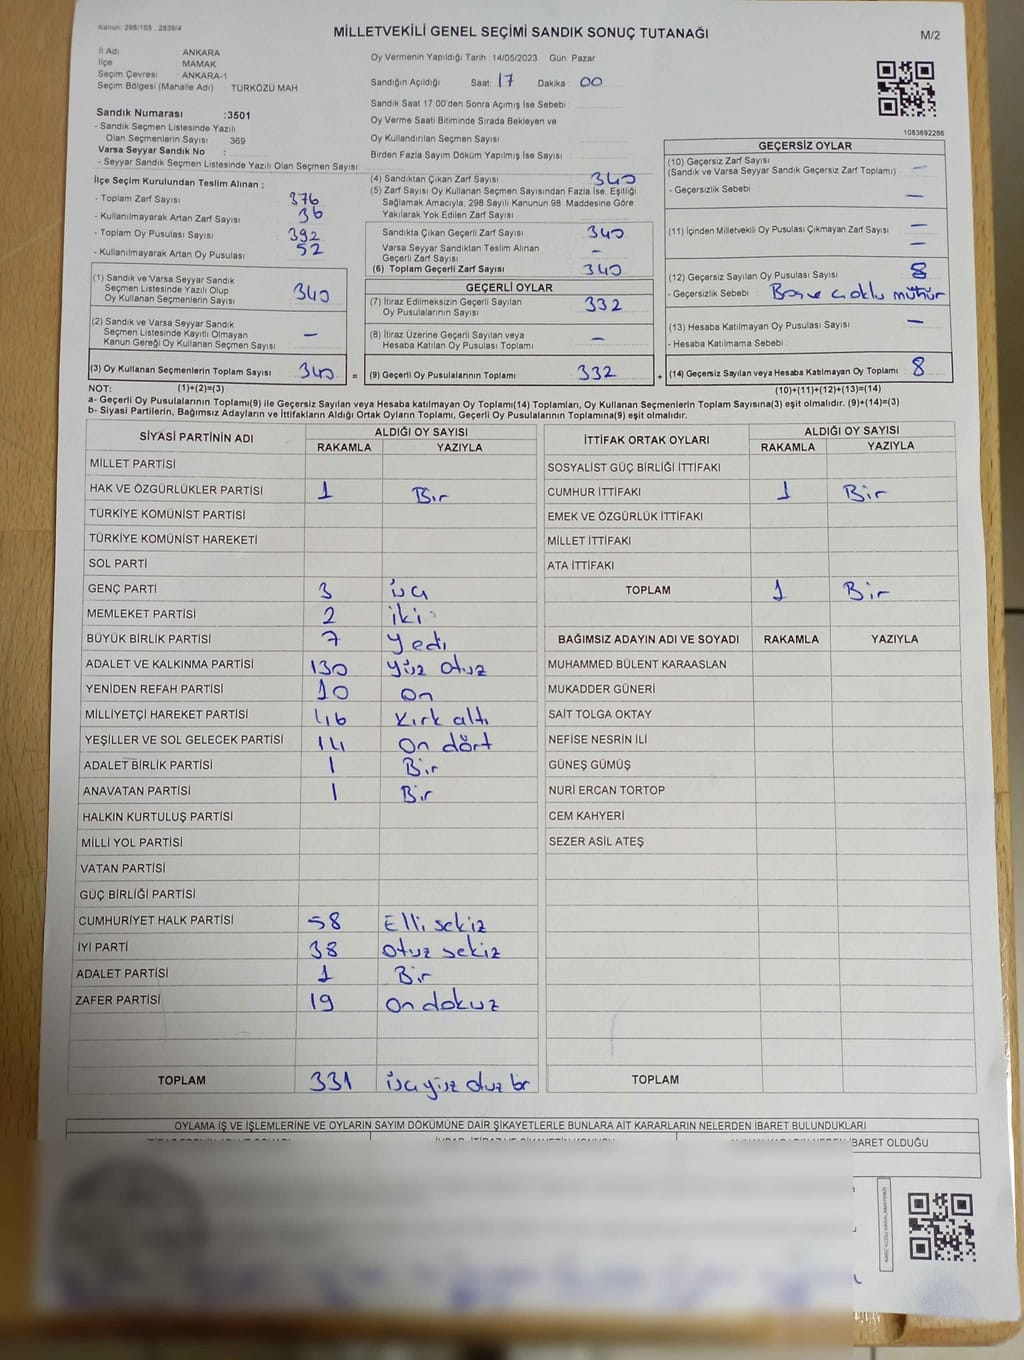 Kanun: 298/105 , 2839/4
MİLLETVEKİLİ GENEL SEÇİMİ SANDIK SONUÇ TUTANAĞI
M/2
İl Adı ANKARA
İlçe MAMAK
Seçim Çevresi ANKARA-1
Seçim Bölgesi (Mahalle Adı) TÜRKÖZÜ MAH
Oy Vermenin Yapıldığı Tarih 14/05/2023 Gün Pazar
Sandığın Açıldığı Saat 17 Dakika 00
Sandık Saat 17:00'den Sonra Açımış İse Sebebi
Oy Verme Saati Bitiminde Sırada Bekleyen ve
Oy Kullandırılan Seçmen Sayısı
Birden Fazla Sayım Döküm Yapılmış İse Sayısı
1083692266
Sandık Numarası :3501
- Sandık Seçmen Listesinde Yazılı
Olan Seçmenlerin Sayısı 369
Varsa Seyyar Sandık No :
- Seyyar Sandık Seçmen Listesinde Yazılı Olan Seçmen Sayısı:
İlçe Seçim Kurulundan Teslim Alınan ;
- Toplam Zarf Sayısı 376
- Kullanılmayarak Artan Zarf Sayısı 36
- Toplam Oy Pusulası Sayısı 392
- Kullanılmayarak Artan Oy Pusulası 52
(1) Sandık ve Varsa Seyyar Sandık
Seçmen Listesinde Yazılı Olup
Oy Kullanan Seçmenlerin Sayısı 340
(2) Sandık ve Varsa Seyyar Sandık
Seçmen Listesinde Kayıtlı Olmayan
Kanun Gereği Oy Kullanan Seçmen Sayısı –
(3) Oy Kullanan Seçmenlerin Toplam Sayısı 340 =
(4) Sandıktan Çıkan Zarf Sayısı 340
(5) Zarf Sayısı Oy Kullanan Seçmen Sayısından Fazla İse, Eşitliği
Sağlamak Amacıyla, 298 Sayılı Kanunun 98. Maddesine Göre
Yakılarak Yok Edilen Zarf Sayısı
Sandıkta Çıkan Geçerli Zarf Sayısı 340
Varsa Seyyar Sandıktan Teslim Alınan
Geçerli Zarf Sayısı –
(6) Toplam Geçerli Zarf Sayısı 340
GEÇERLİ OYLAR
(7) İtiraz Edilmeksizin Geçerli Sayılan
Oy Pusulalarının Sayısı 332
(8) İtiraz Üzerine Geçerli Sayılan veya
Hesaba Katılan Oy Pusulası Toplamı –
(9) Geçerli Oy Pusulalarının Toplamı 332 +
GEÇERSİZ OYLAR
(10) Geçersiz Zarf Sayısı
(Sandık ve Varsa Seyyar Sandık Geçersiz Zarf Toplamı) –
- Geçersizlik Sebebi : –
(11) İçinden Milletvekili Oy Pusulası Çıkmayan Zarf Sayısı –
–
(12) Geçersiz Sayılan Oy Pusulası Sayısı 8
- Geçersizlik Sebebi : Boş ve çoklu mühür
(13) Hesaba Katılmayan Oy Pusulası Sayısı –
- Hesaba Katılmama Sebebi :
(14) Geçersiz Sayılan veya Hesaba Katılmayan Oy Toplamı 8
NOT: (1)+(2)=(3) (10)+(11)+(12)+(13)=(14)
a- Geçerli Oy Pusulalarının Toplamı(9) ile Geçersiz Sayılan veya Hesaba katılmayan Oy Toplamı(14) Toplamları, Oy Kullanan Seçmenlerin Toplam Sayısına(3) eşit olmalıdır. (9)+(14)=(3)
b- Siyasi Partilerin, Bağımsız Adayların ve İttifakların Aldığı Ortak Oyların Toplamı, Geçerli Oy Pusulalarının Toplamına(9) eşit olmalıdır.
SİYASİ PARTİNİN ADI ALDIĞI OY SAYISI
RAKAMLA YAZIYLA
MİLLET PARTİSİ
HAK VE ÖZGÜRLÜKLER PARTİSİ 1 Bir
TÜRKİYE KOMÜNİST PARTİSİ
TÜRKİYE KOMÜNİST HAREKETİ
SOL PARTİ
GENÇ PARTİ 3 üç
MEMLEKET PARTİSİ 2 iki
BÜYÜK BİRLİK PARTİSİ 7 yedi
ADALET VE KALKINMA PARTİSİ 130 yüz otuz
YENİDEN REFAH PARTİSİ 10 on
MİLLİYETÇİ HAREKET PARTİSİ 46 kırk altı
YEŞİLLER VE SOL GELECEK PARTİSİ 14 on dört
ADALET BİRLİK PARTİSİ 1 Bir
ANAVATAN PARTİSİ 1 Bir
HALKIN KURTULUŞ PARTİSİ
MİLLİ YOL PARTİSİ
VATAN PARTİSİ
GÜÇ BİRLİĞİ PARTİSİ
CUMHURİYET HALK PARTİSİ 58 Elli sekiz
İYİ PARTİ 38 otuz sekiz
ADALET PARTİSİ 1 Bir
ZAFER PARTİSİ 19 on dokuz
TOPLAM 331 üçyüz otuz bir
İTTİFAK ORTAK OYLARI ALDIĞI OY SAYISI
RAKAMLA YAZIYLA
SOSYALİST GÜÇ BİRLİĞİ İTTİFAKI
CUMHUR İTTİFAKI 1 Bir
EMEK VE ÖZGÜRLÜK İTTİFAKI
MİLLET İTTİFAKI
ATA İTTİFAKI
TOPLAM 1 Bir
BAĞIMSIZ ADAYIN ADI VE SOYADI RAKAMLA YAZIYLA
MUHAMMED BÜLENT KARAASLAN
MUKADDER GÜNERİ
SAİT TOLGA OKTAY
NEFİSE NESRİN İLİ
GÜNEŞ GÜMÜŞ
NURİ ERCAN TORTOP
CEM KAHYERİ
SEZER ASİL ATEŞ
TOPLAM
OYLAMA İŞ VE İŞLEMLERİNE VE OYLARIN SAYIM DÖKÜMÜNE DAİR ŞİKAYETLERLE BUNLARA AİT KARARLARIN NELERDEN İBARET BULUNDUKLARI
İBARET OLDUĞU